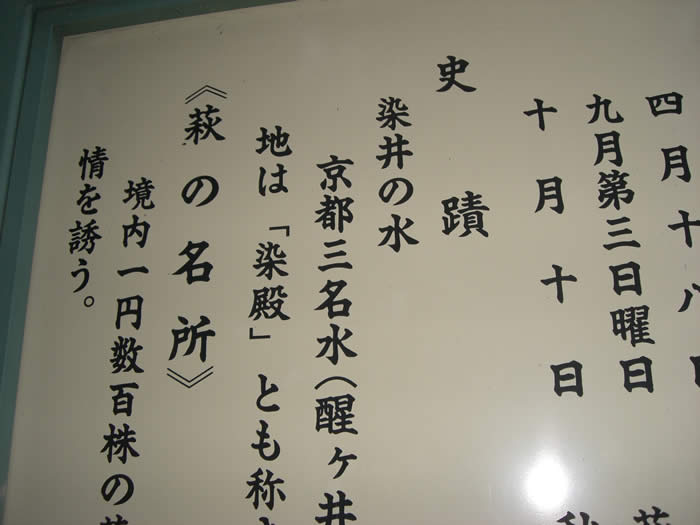 四月十八日
九月第三日曜日
十月十日
史蹟
染井の水
京都三名水（醒ヶ井
地は「染殿」とも称
《萩の名所》
境内一円数百株の
情を誘う。